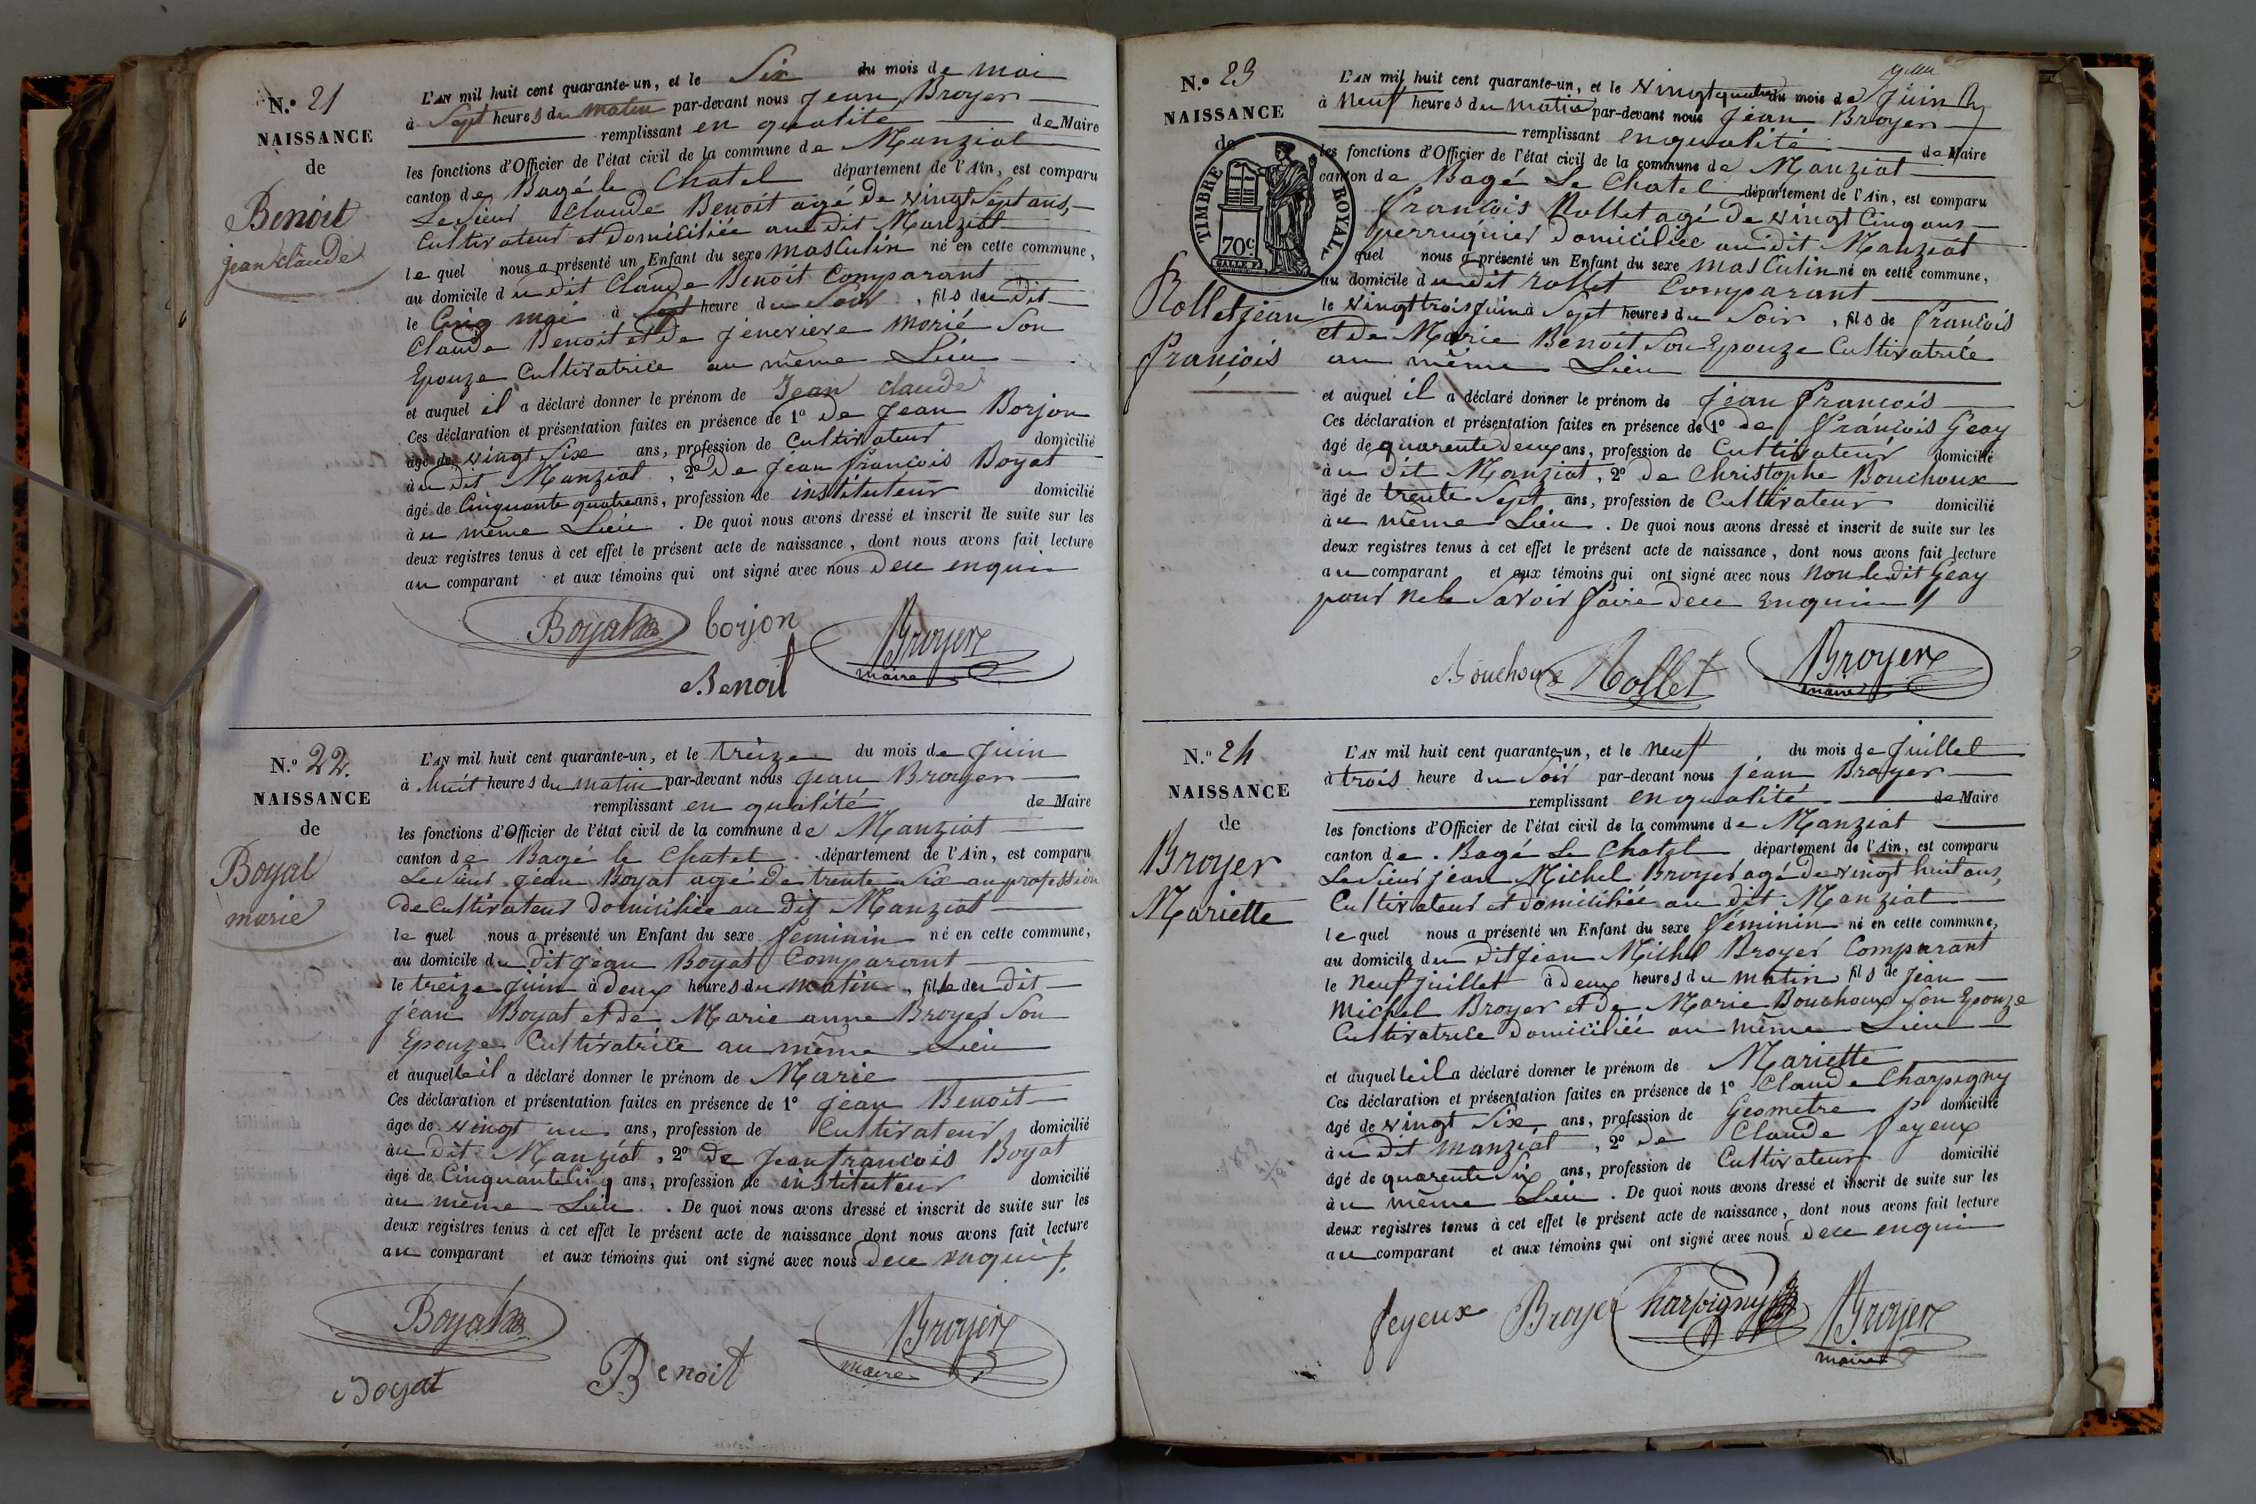 N.º 21
NAISSANCE
de
Benoit
jean claude
L'AN mil huit cent quarante-un, et le Six du mois de mai
à Sept heures du matin par-devant nous Jean Broyer
remplissant en qualité de Maire
les fonctions d'Officier de l'état civil de la commune de Manziat
canton de Bagé le Chatel département de l'Ain, est comparu
Le Sieur Claude Benoit agé de vingt Sept ans,
Cultivateur et domiciliée au dit Manziat
le quel nous a présenté un Enfant du sexe masculin né en cette commune,
au domicile du dit Claude Benoit Comparant
le Cinq mai à Sept heure du Soir, fils du dit
Claude Benoit et de jenevieve morié Son
Epouze Cultivatrice au même Lieu
et auquel il a déclaré donner le prénom de Jean claude
Ces déclaration et présentation faites en présence de 1º De Jean Borjon
âgé de vingt Six ans, profession de Cultivateur domicilié
à u dit Manziat, 2º De Jean françois Boyat
âgé de Cinquante quatre ans, profession de instituteur domicilié
à u même Lieu. De quoi nous avons dressé et inscrit de suite sur les
deux registres tenus à cet effet le présent acte de naissance, dont nous avons fait lecture
au comparant et aux témoins qui ont signé avec nous Dece enquis
Boyat borjon Broyer
maire
Benoit
N.º 22.
NAISSANCE
de
Boyat
marie
L'AN mil huit cent quarante-un, et le treize du mois de Juin
à huit heures du matin par-devant nous Jean Broyer
remplissant en qualité de Maire
les fonctions d'Officier de l'état civil de la commune de Manziat
canton de Bagé le Chatel département de l'Ain, est comparu
Le Sieur jean Boyat agé de trente Six an profession
de Cultivateur domiciliée au dit Manziat
le quel nous a présenté un Enfant du sexe féminin né en cette commune,
au domicile du dit jean Boyat Comparant
le treize juin à deux heures du matin, fille du dit
jean Boyat et de Marie anne Broyer Son
Epouze Cultivatrice au même Lieu
et auquelle il a déclaré donner le prénom de Marie
Ces déclaration et présentation faites en présence de 1º Jean Benoit
âgé de vingt un ans, profession de Cultivateur domicilié
à u dit Manziat, 2º De Jean françois Boyat
âgé de Cinquante Cinq ans, profession de instituteur domicilié
à u même Lieu. De quoi nous avons dressé et inscrit de suite sur les
deux registres tenus à cet effet le présent acte de naissance dont nous avons fait lecture
au comparant et aux témoins qui ont signé avec nous Dece enquis
Boyat Broyer
maire
Boyat Benoit
N.º 23
NAISSANCE
de
TIMBRE ROYAL
70c
Rollet jean
françois
L'AN mil huit cent quarante-un, et le vingt quatre du mois de Juin
à Neuf heures du matin par-devant nous Jean Broyer
remplissant en qualité de Maire
les fonctions d'Officier de l'état civil de la commune de Manziat
canton de Bagé Le Chatel département de l'Ain, est comparu
françois Rollet agé de vingt Cinq ans
perruquier domiciliée au dit Manziat
quel nous a présenté un Enfant du sexe masculin né en cette commune,
au domicile du dit rollet Comparant
le vingt trois juin à Sept heures du Soir, fils de françois
et de Marie Benoit Son Epouze Cultivatrice
au même Lieu
et auquel il a déclaré donner le prénom de jean françois
Ces déclaration et présentation faites en présence de 1º de françois Geay
âgé de quarente deux ans, profession de Cultivateur domicilié
à u dit Manziat, 2º de Christophe Bouchoux
âgé de trente Sept ans, profession de Cultivateur domicilié
à u même Lieu. De quoi nous avons dressé et inscrit de suite sur les
deux registres tenus à cet effet le présent acte de naissance, dont nous avons fait lecture
au comparant et aux témoins qui ont signé avec nous Non le dit Geay
pour ne le Savoir faire Dece Enquis
Bouchoux Rollet Broyer
maire
N.º 24
NAISSANCE
de
Broyer
Mariette
L'AN mil huit cent quarante-un, et le neuf du mois de Juillet
à trois heure du Soir par-devant nous jean Broyer
remplissant en qualité de Maire
les fonctions d'Officier de l'état civil de la commune de Manziat
canton de Bagé Le Chatel département de l'Ain, est comparu
Le Sieur jean Michel Broyer agé de vingt huit ans,
Cultivateur et domiciliée au dit Manziat
le quel nous a présenté un Enfant du sexe féminin né en cette commune,
au domicile du dit jean Michel Broyer Comparant
le neuf juillet à deux heures du matin fils de jean
Michel Broyer et de Marie Bouchoux Son Epouze
Cultivatrice domiciliée au même Lieu
et auquelle il a déclaré donner le prénom de Mariette
Ces déclaration et présentation faites en présence de 1º Claude Charpigny
âgé de vingt Six ans, profession de Geometre domicilié
à u dit manziat, 2º de Claude feyeux
âgé de quarente Six ans, profession de Cultivateur domicilié
à u même Lieu. De quoi nous avons dressé et inscrit de suite sur les
deux registres tenus à cet effet le présent acte de naissance, dont nous avons fait lecture
au comparant et aux témoins qui ont signé avec nous Dece enquis
feyeux Broyer Charpigny Broyer
maire